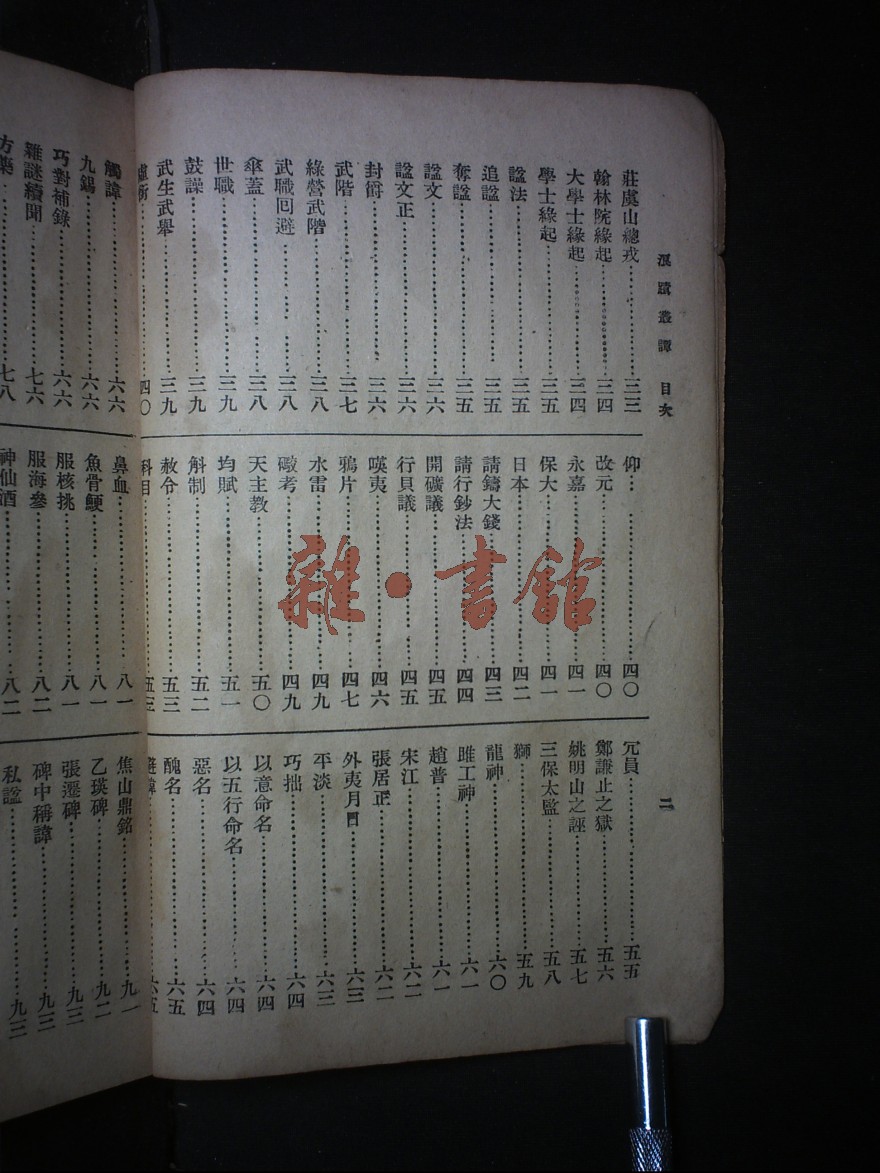 浪蹟叢譚 目次
二
莊虞山總戎三三
翰林院緣起三四
大學士緣起三四
學士緣起三五
諡法三五
追諡三五
奪諡三五
諡文三六
諡文正三六
封爵三六
武階三七
綠營武階三八
武職回避三八
傘蓋三八
世職三九
鼓譟三九
武生武舉三九
四〇
仰四〇
改元四〇
永嘉四一
保大四一
日本四二
請鑄大錢四三
請行鈔法四四
開礦議四五
行貝議四五
嘆夷四六
鴉片四七
水雷四九
礮考四九
天主教五〇
均賦五一
斛制五二
赦令五三
科目五三
冗員五五
鄭謙止之獄五六
姚明山之誣五七
三保太監五八
獅五九
龍神六〇
雎工神六一
趙普六一
宋江六二
張居正六二
外夷月日六三
平淡六三
巧拙六四
以意命名六四
以五行命名六四
惡名六四
醜名六五
避諱六五
觸諱六六
九錫六六
巧對補錄六六
雜謎續聞七六
方藥七八
鼻血八一
魚骨鯁八一
服核挑八一
服海參八二
神仙酒八二
焦山鼎銘九一
乙瑛碑九二
張遷碑九三
碑中稱諱九三
私諡九三
雜·書館